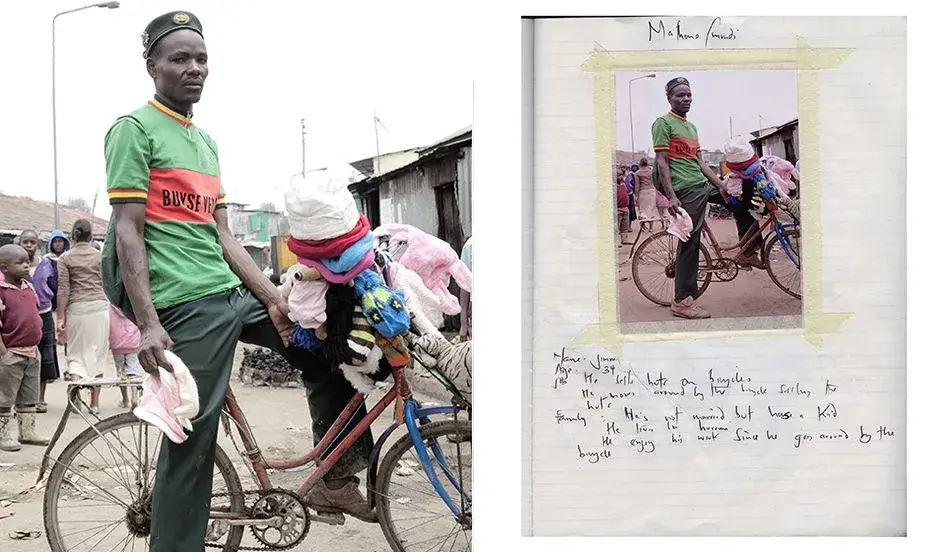 BUVSE VE
BUVSE VE
Name - Jimmy
Age - 34
Job He sell hats on bicycles
He moves around by the bicycle selling the
hats
Family He is not married but has a Kid
He live in
He enjoy his work Since he goes around by the
bicycle